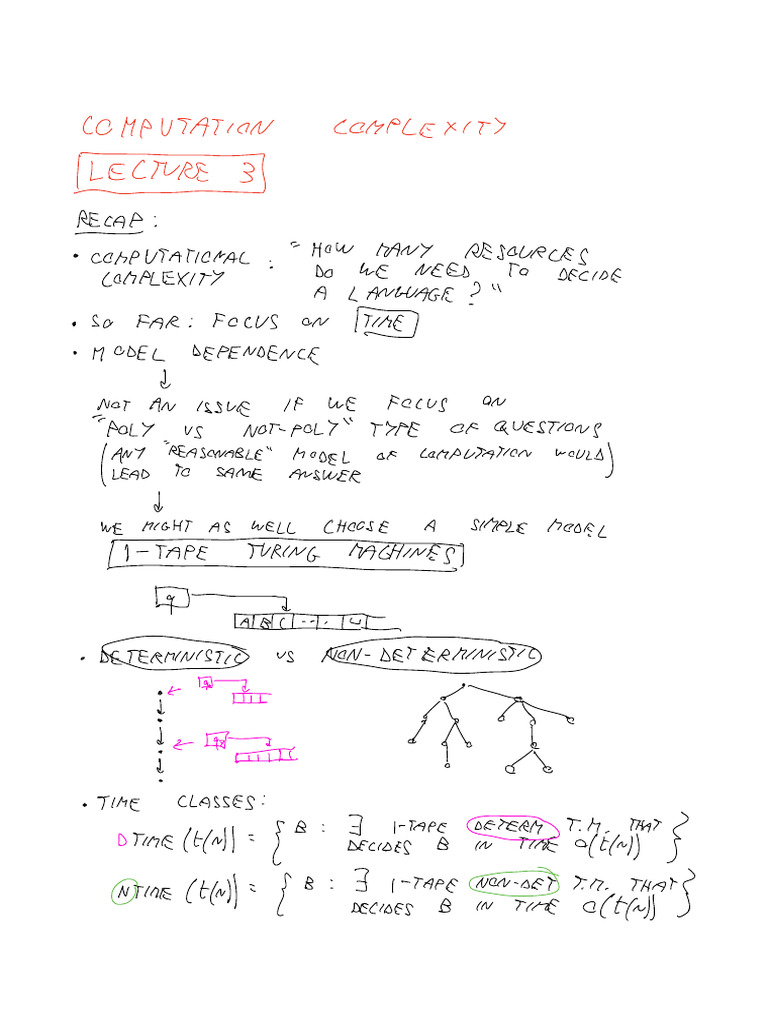 COMPUTATION COMPLEXITY
LECTURE 3
RECAP:
• COMPUTATIONAL COMPLEXITY : "HOW MANY RESOURCES
DO WE NEED TO DECIDE
A LANGUAGE?"
• SO FAR: FOCUS ON TIME
• MODEL DEPENDENCE
↓
NOT AN ISSUE IF WE FOCUS ON
"POLY VS NOT-POLY" TYPE OF QUESTIONS
(ANY "REASONABLE" MODEL OF COMPUTATION WOULD
LEAD TO SAME ANSWER)
↓
WE MIGHT AS WELL CHOOSE A SIMPLE MODEL
1-TAPE TURING MACHINES
q
A B C ... ⊔
• DETERMINISTIC VS NON-DETERMINISTIC
• TIME CLASSES:
DTIME(t(n)) = { B : ∃ 1-TAPE DETERM T.M. THAT
DECIDES B IN TIME O(t(n)) }
NTIME(t(n)) = { B : ∃ 1-TAPE NON-DET T.M. THAT
DECIDES B IN TIME O(t(n)) }